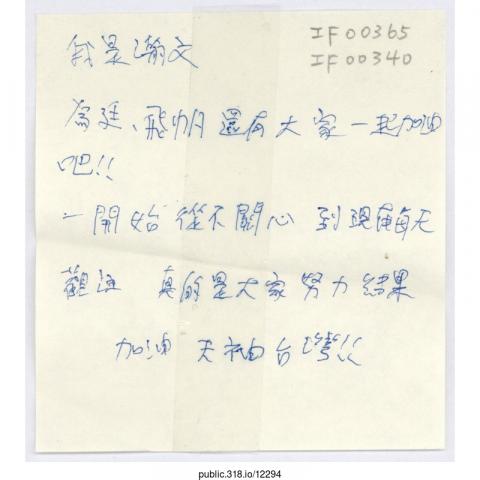 我是瀚文
IF00365
IF00340
為廷、飛帆還有大家一起加油
吧!!
一開始從不關心 到現在每天
觀注 真的是大家努力結果
加油 天祐台灣!!
public.318.io/12294